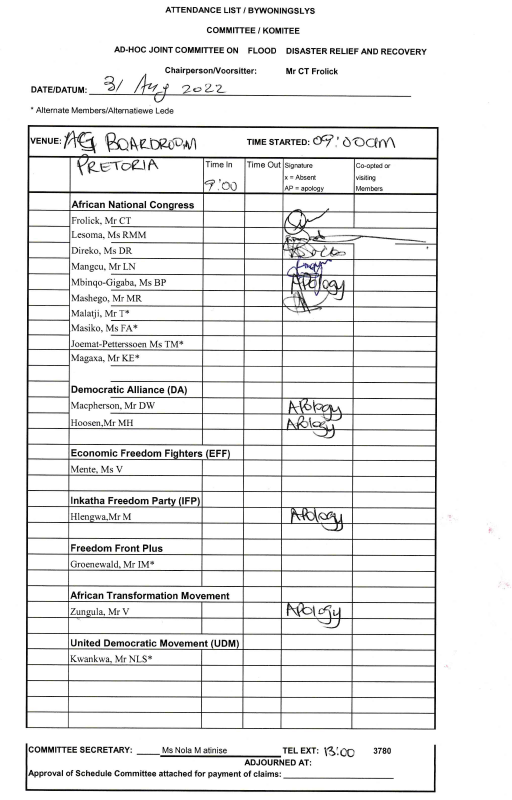 ATTENDANCE LIST / BYWONINGSLYS
COMMITTEE / KOMITEE
AD-HOC JOINT COMMITTEE ON FLOOD DISASTER RELIEF AND RECOVERY
Chairperson/Voorsitter: Mr CT Frolick
DATE/DATUM: 31 Aug 2022
* Alternate Members/Alternatiewe Lede
VENUE: AG BOARDROOM TIME STARTED: 09:00am
PRETORIA Time In Time Out Signature Co-opted or
x = Absent visiting
9:00 AP = apology Members
African National Congress
Frolick, Mr CT
Lesoma, Ms RMM
Direko, Ms DR
Mangcu, Mr LN
Mbinqo-Gigaba, Ms BP Apology
Mashego, Mr MR
Malatji, Mr T*
Masiko, Ms FA*
Joemat-Petterssoen Ms TM*
Magaxa, Mr KE*
Democratic Alliance (DA)
Macpherson, Mr DW Apology
Hoosen,Mr MH Apology
Economic Freedom Fighters (EFF)
Mente, Ms V
Inkatha Freedom Party (IFP)
Hlengwa,Mr M Apology
Freedom Front Plus
Groenewald, Mr IM*
African Transformation Movement
Zungula, Mr V Apology
United Democratic Movement (UDM)
Kwankwa, Mr NLS*
COMMITTEE SECRETARY: Ms Nola M atinise TEL EXT: 13:00 3780
ADJOURNED AT:
Approval of Schedule Committee attached for payment of claims: